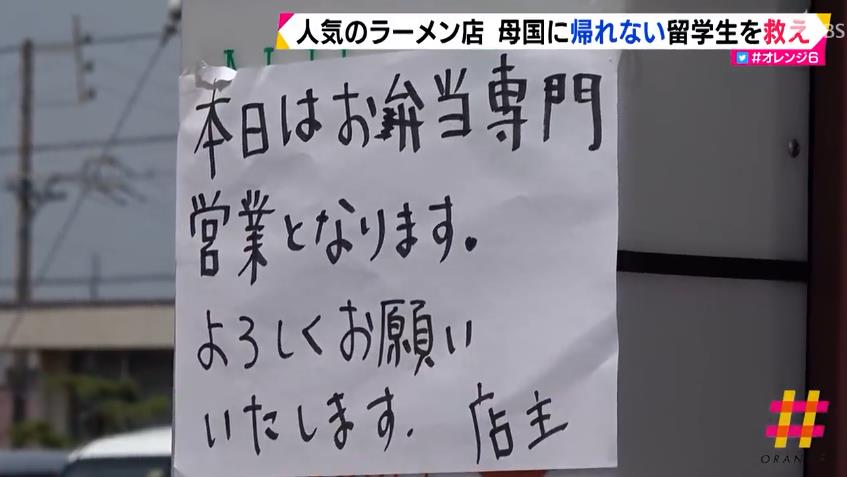 人気のラーメン店 母国に帰れない留学生を救え
#オレンジ6
本日はお弁当専門
営業となります。
よろしくお願い
いたします. 店主
#